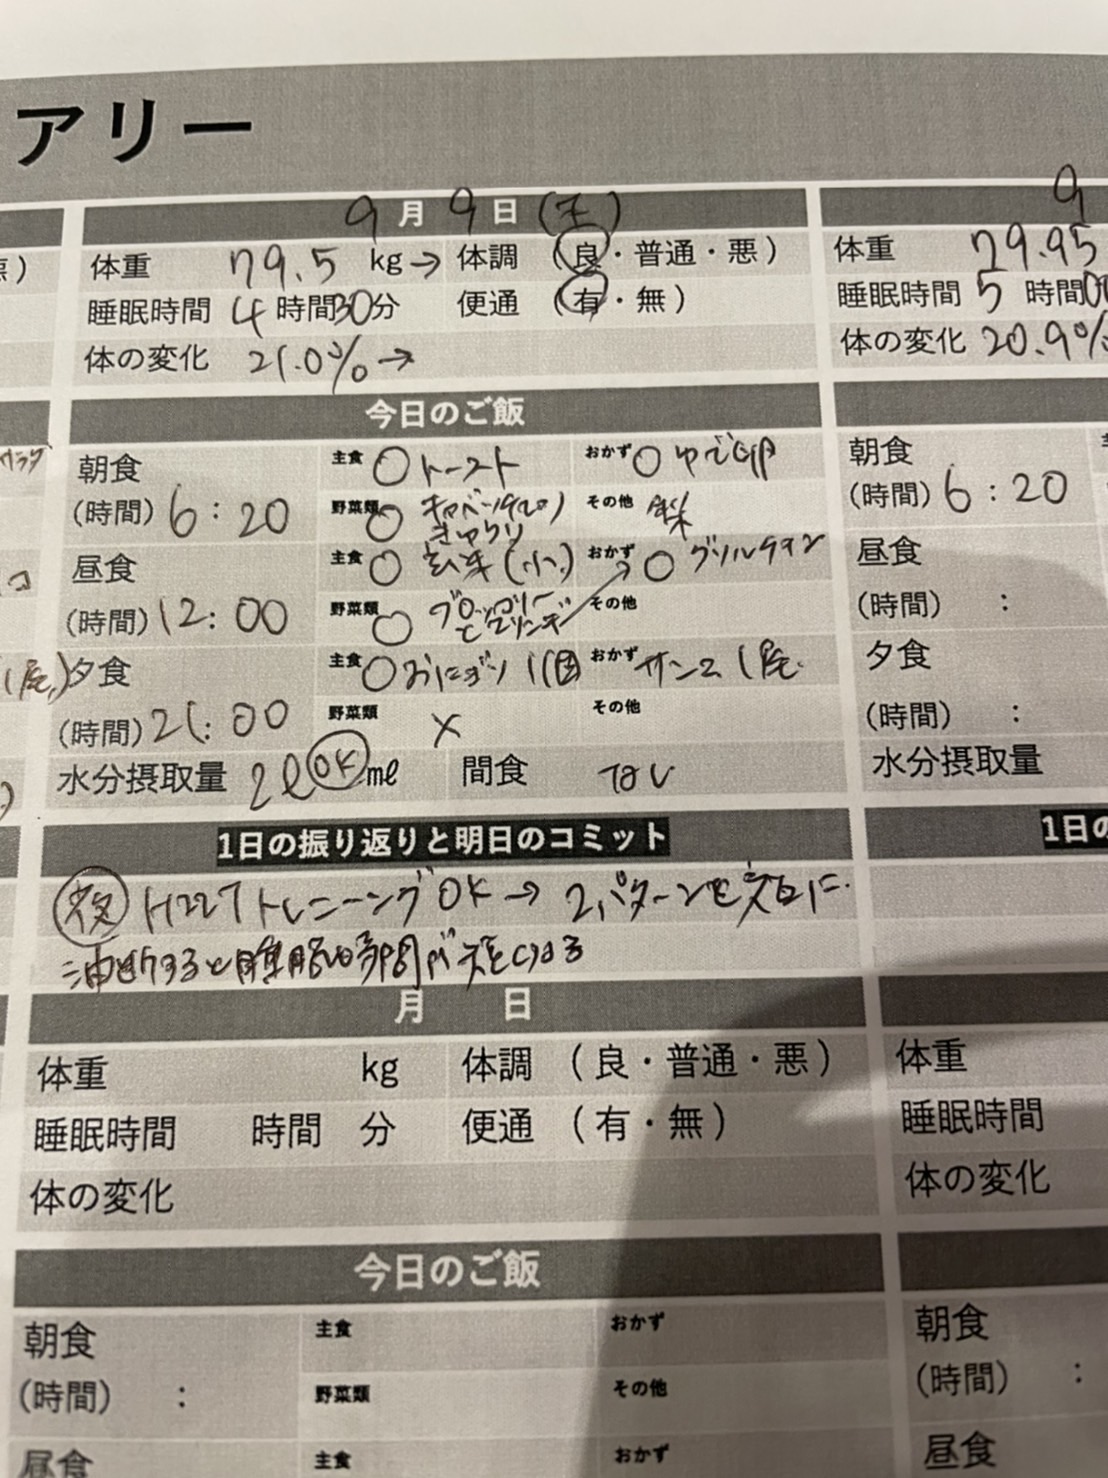 アリー
9月9日(土)
体重 79.5 kg→ 体調 (良・普通・悪)
睡眠時間 4時間30分 便通 (有・無)
体の変化 21.0%→
今日のご飯
朝食 主食 ○トースト おかず ○ゆで卵
(時間) 6:20 野菜類 ○ きゅうり その他
昼食 主食 ○玄米(小) おかず ○グリルチキン
(時間) 12:00 野菜類 ○ブロッコリーとエリンギ その他
夕食 主食 ○おにぎり1個 おかず サンマ1尾
(時間) 21:00 野菜類 × その他
水分摂取量 2ℓ OK mℓ 間食 なし
1日の振り返りと明日のコミット
夜 トレーニングOK→2パターンを交互に.
油断すると睡眠時間が短くなる
月 日
体重 kg 体調 (良・普通・悪)
睡眠時間 時間 分 便通 (有・無)
体の変化
今日のご飯
朝食 主食 おかず
(時間) : 野菜類 その他
昼食 主食 おかず
悪)
サラダ
1尾)
9
体重 79.95
睡眠時間 5時間00
体の変化 20.9%
朝食
(時間) 6:20
昼食
(時間) :
夕食
(時間) :
水分摂取量
1日の
体重
睡眠時間
体の変化
朝食
(時間) :
昼食